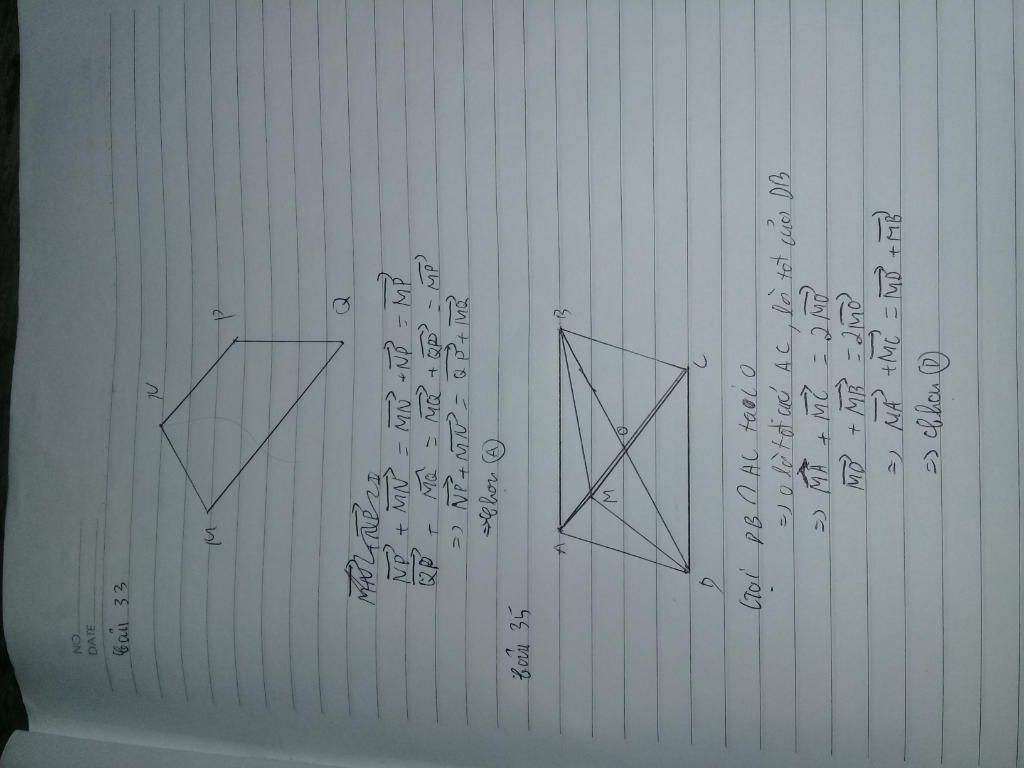 NO
DATE
Câu 33
N
P
M
Q
NP + MN = MN + NP = MP
QP + MQ = MQ + QP = MP
=> NP + MN = QP + MQ
=> Chọn A
Câu 35
A
B
M
O
D
C
Gọi DB ∩ AC tại O
=> O là tđ của AC, là tđ của DB
=> MA + MC = 2MO
MD + MB = 2MO
=> MA + MC = MD + MB
=> Chọn D